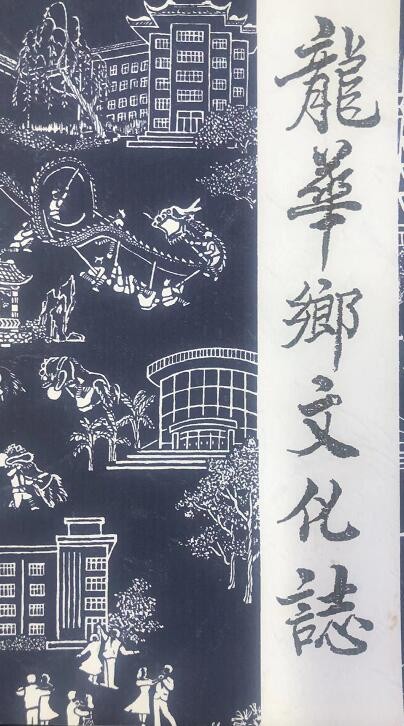 龍華鄉文化誌